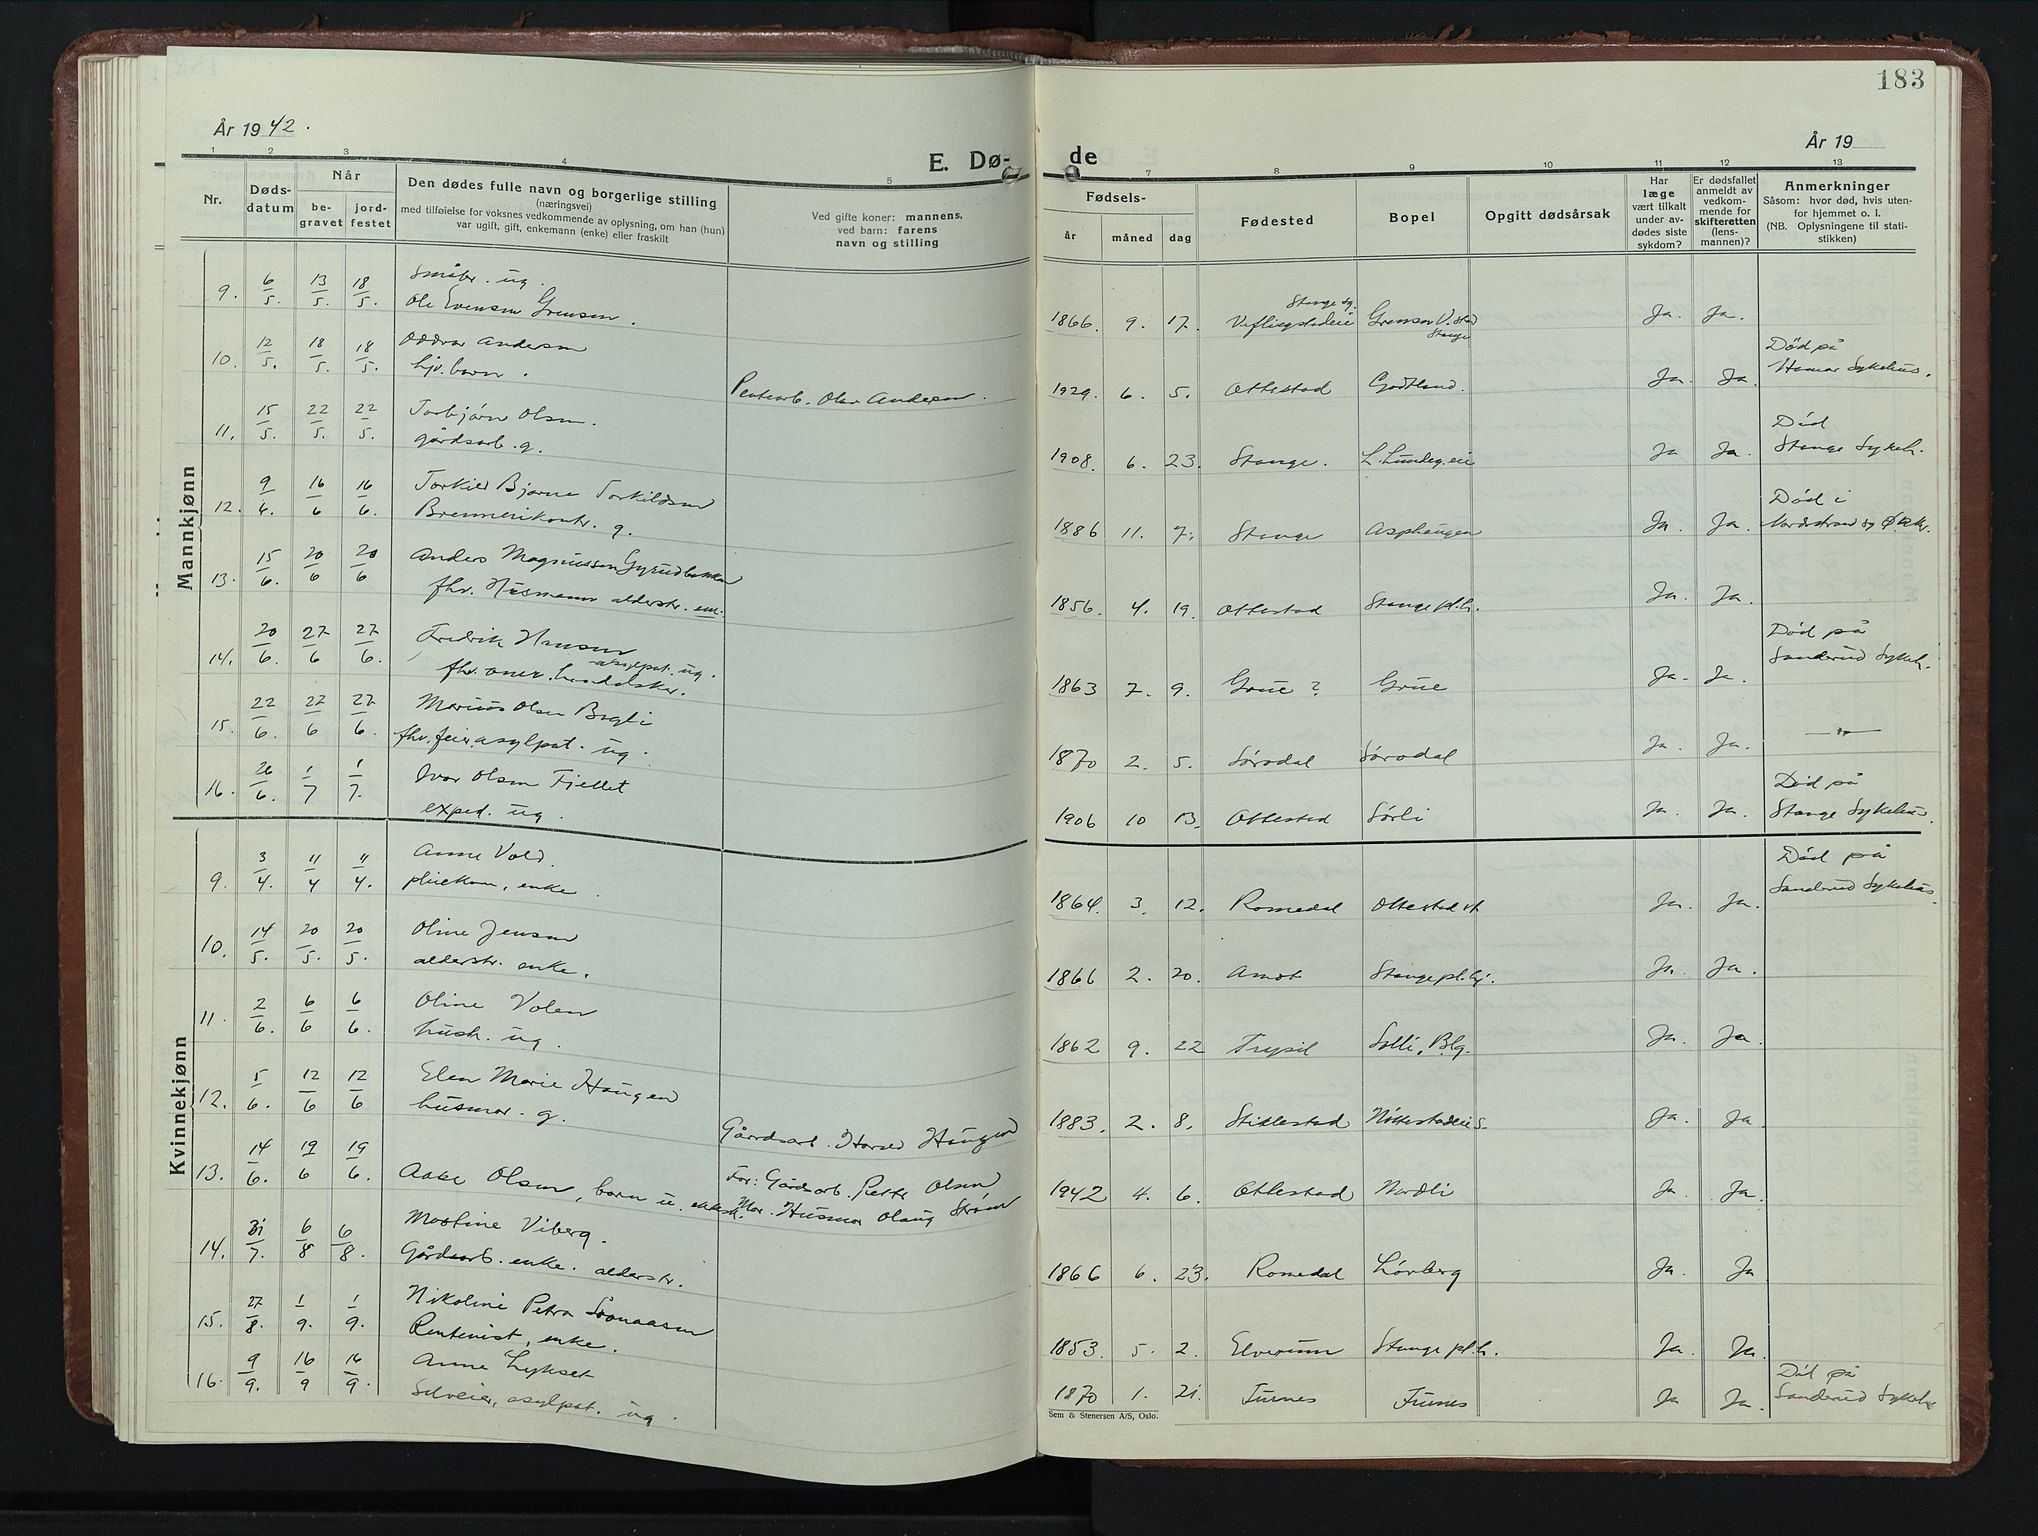 183
År 1942.
År 19
E. Dø-
de
1 2 3 4 5 7 8 9 10 11 12 13
Nr.
Døds-
datum
Når
be-
gravet
jord-
festet
Den dødes fulle navn og borgerlige stilling
(næringsvei)
med tilføielse for voksnes vedkommende av oplysning, om han (hun)
var ugift, gift, enkemann (enke) eller fraskilt
Ved gifte koner: mannens,
ved barn: farens
navn og stilling
Fødsels-
år måned dag
Fødested
Bopel
Opgitt dødsårsak
Har
læge
vært tilkalt
under av-
dødes siste
sykdom?
Er dødsfallet
anmeldt av
vedkom-
mende for
skifteretten
(lens-
mannen)?
Anmerkninger
Såsom: hvor død, hvis uten-
for hjemmet o. l.
(NB. Oplysningene til stati-
stikken)
Mannkjønn
9. 6/5. 13/5. 18/5. Småbr. ug.
Ole Evensen Grensen.
1866. 9. 17. Stange sg. Veflingstadeie Grensen V. Stad Stange Ja. Ja.
10. 12/5. 18/5. 18/5. Oddvar Andersen
hjv. barn.
Olav Andersen.
1929. 6. 5. Ottestad Godtland. Ja. Ja. Død på
Hamar Sykehus.
11. 15/5. 22/5. 22/5. Torbjørn Olsen.
gårdsarb. g.
1908. 6. 23. Stange. L. Lundeg. eie Ja Ja. Død
Stange Sykeh.
12. 9/6. 16/6 16/6. Torkild Bjarne Torkildsen
Brennerikontr. g.
1886 11. 7. Stange Asphaugen Ja. Ja. Død i
Nordstrand og Ø. Aker.
13. 15/6. 20/6 20/6 Anders Magnussen Gyrudbakken
fhv. Husmann alderstr. em.
1856. 4. 19. Ottestad Stange pl.h. Ja. Ja.
14. 20/6. 27/6 27/6. Fredrik Hansen
fhv. handelsker. asylpat. ug.
1863 7. 9. Grue? Grue Ja. Ja. Død på
Sanderud Sykeh.
15. 22/6. 27/6 27/6. Marius Olsen Bogli
fhv. feier, asylpat. ug.
1870 2. 5. Sørodal Sørodal Ja. Ja. —"—
16. 26/6. 1/7 1/7. Ivar Olsen Fjellet
exped. ug.
1906 10 13. Ottestad Sørli Ja. Ja. Død på
Stange Sykehus.
Kvinnekjønn
9. 3/4. 11/4 11/4. Anne Vold.
pleiekone, enke.
1864. 3. 12. Romedal Ottestad st Ja. Ja. Død på
Sanderud Sykehus.
10. 14/5. 20/5. 20/5. Oline Jensen
alderstr. enke.
1866 2. 20. Amot Stange pl.hj. Ja. Ja.
11. 2/6. 6/6 6/6. Oline Volen
hush. ug.
1862 9. 22 Trysil Solli, Blg. Ja. Ja.
12. 5/6. 12/6 12/6 Elen Marie Haugen
husmor. g.
Gårdsarb. Haugen
1883. 2. 8. Stillestad Nøttestadeie S. Ja. Ja.
13. 14/6. 19/6 19/6. Aase Olsen, barn u. ektesk.
Far: Gårdsarb. Petter Olsen
Mor. Husmor Olaug Strøm
1942 4. 6. Ottestad Nordli Ja. Ja.
14. 31/7. 6/8 6/8. Mostine Viberg.
Gårdsarb. enke. alderstr.
1866 6. 23. Romedal Lövberg Ja. Ja
15. 27/8. 1/9. 1/9. Nikoline Petra
Rentenist, enke.
1853. 5. 2. Elverum Stange pl.h. Ja. Ja.
16. 9/9. 16/9 16/9. Anne Lykset
Selveier, asylpat. ug.
1870 1. 21. Furnes Furnes Ja Ja. Død på
Sanderud Sykeh
Sem & Stenersen A/S, Oslo.